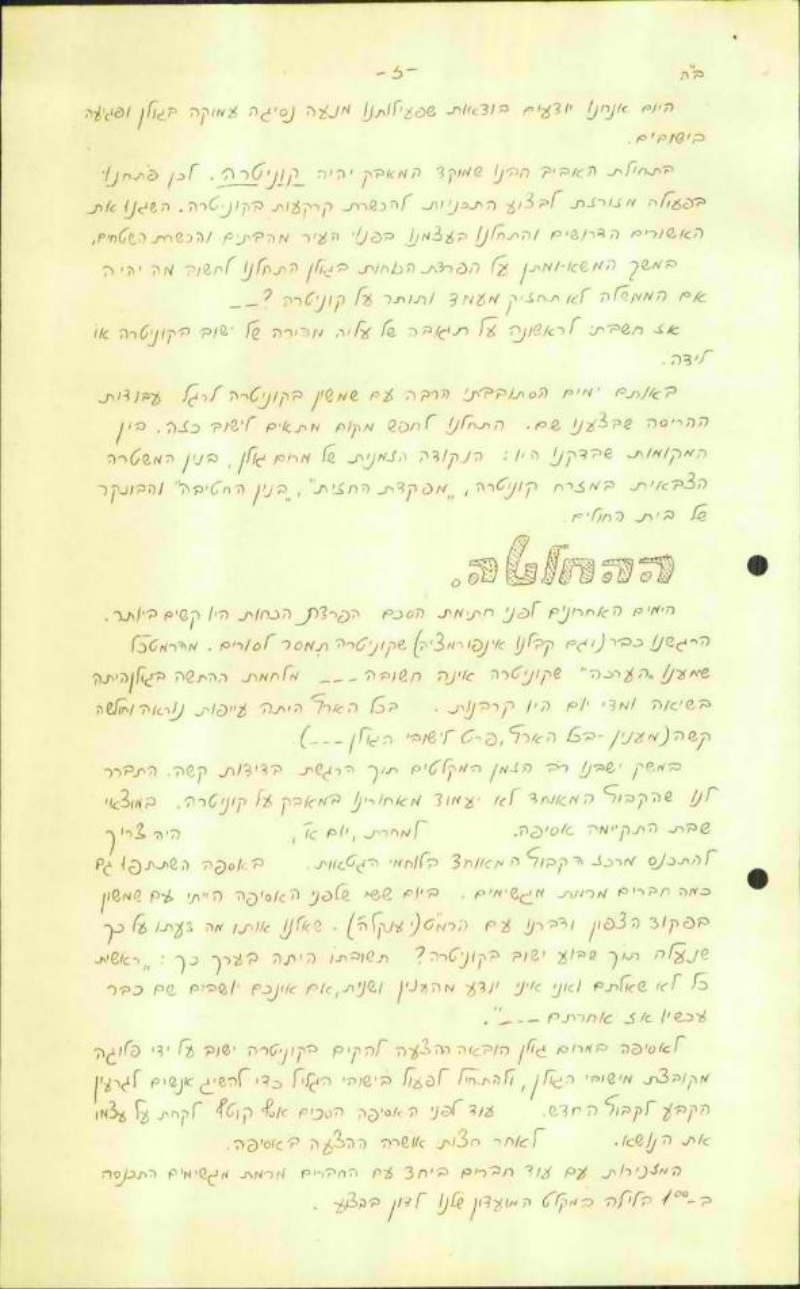 ב"ה
-3-
היום אנחנו יודעים בודאות שפעילותנו מנעה נסיגה עמוקה בגולן ופגיעה
בישובים.
בתחילת האביב הבנו שמוקד המאבק יהיה קוניטרה. לכן פתחנו
בפעולה מזורזת לבצוע התכניות להכשרת קרקעות בקוניטרה. השגנו את
האשורים הדרושים והתחלנו בעצמנו בפנוי העיר מהבתים והכשרת השטחים.
במשך המשא-ומתן על הפרצת הכוחות בגולן התחלנו לחשוב מה יהיה
אם הממשלה לא תחזיק מעמד ותותר על קוניטרה ?---
אז חשבתי לראשונה על תגובה של עליה מהירה של ישוב בקוניטרה או
לידה.
באותם ימים הסתובבתי הרבה עם שמשון בקוניטרה לרגל עבודות
ההריסה שבצענו שם. התחלנו לחפש מקום מתאים לישוב כזה. בין
המקומות שבדקנו היו: הנקודה הזמנית של מרום גולן, בנין המשטרה
הצבאית במזרח קוניטרה, "מפקדת החזית", "בנין החטיבה" והבונקר
של בית החולים.
ההחלטה.
הימים האחרונים לפני חתימת הסכם הפרצת הכוחות היו קשים ביותר.
הרגשנו כבר (וגם קבלנו אינפורמציה) שקוניטרה תמסר לסורים. מהרמטכ"ל
שמענו "הערכה" שקוניטרה אינה חשובה --- מלחמת ההתשה בגולן היתה
בשיאה ומדי יום היו קרבנות. בכל הארץ היתה עייפות נוראה וחולשה
קשה (מענין -בכל הארץ, פרט לישובי הגולן ---)
במשק ישבנו רב הזמן המקלטים תוך הרגשת בדידות קשה. התברר
לנו שהקבוץ המאוחד לא יעמוד מאחורינו במאבק על קוניטרה. במוצאי
שבת התקיימה אסיפה. למחרת, יום א', היה צריך
להתכנס מרכז הקבוץ המאוחד בלוחמי הגטאות. באספה השתתפו גם
כמה חברים מרמת מגשימים. ביום ששי שלפני האסיפה הייתי עם שמשון
בפקוד הצפון ודברנו עם הרמ"ט (יענקל'ה). שאלנו אותו מה דעתו על כך
שנעלה תוך שבוע ישוב בקוניטרה? תשובתו היתה בערך כך: "ראשית
כל לא שאלתם ואני איני יודע מהענין ושנית, אם אינכם יושבים שם כבר
עכשיו אז אחרתם ---".
לאסיפה במרום גולן הובאה ההצעה להקים בקוניטרה ישוב על ידי פלוגה
מקובצת מישובי הגולן, ולהתחיל לפעול בישובי הגליל כדי להשיג אנשים לגרעין
הקבע לקבוץ החדש. עוד לפני האסיפה הסכים אסף קוטף לקחת על עצמו
את הנושא. לאחר חצות אושרה ההצעה באסיפה.
המזכירות עם עוד חברים ביחד עם החברים מרמת מגשימים התכנסה
ב-1⁰⁰ בלילה במקלט המועדון שלנו לדון בבצוע.